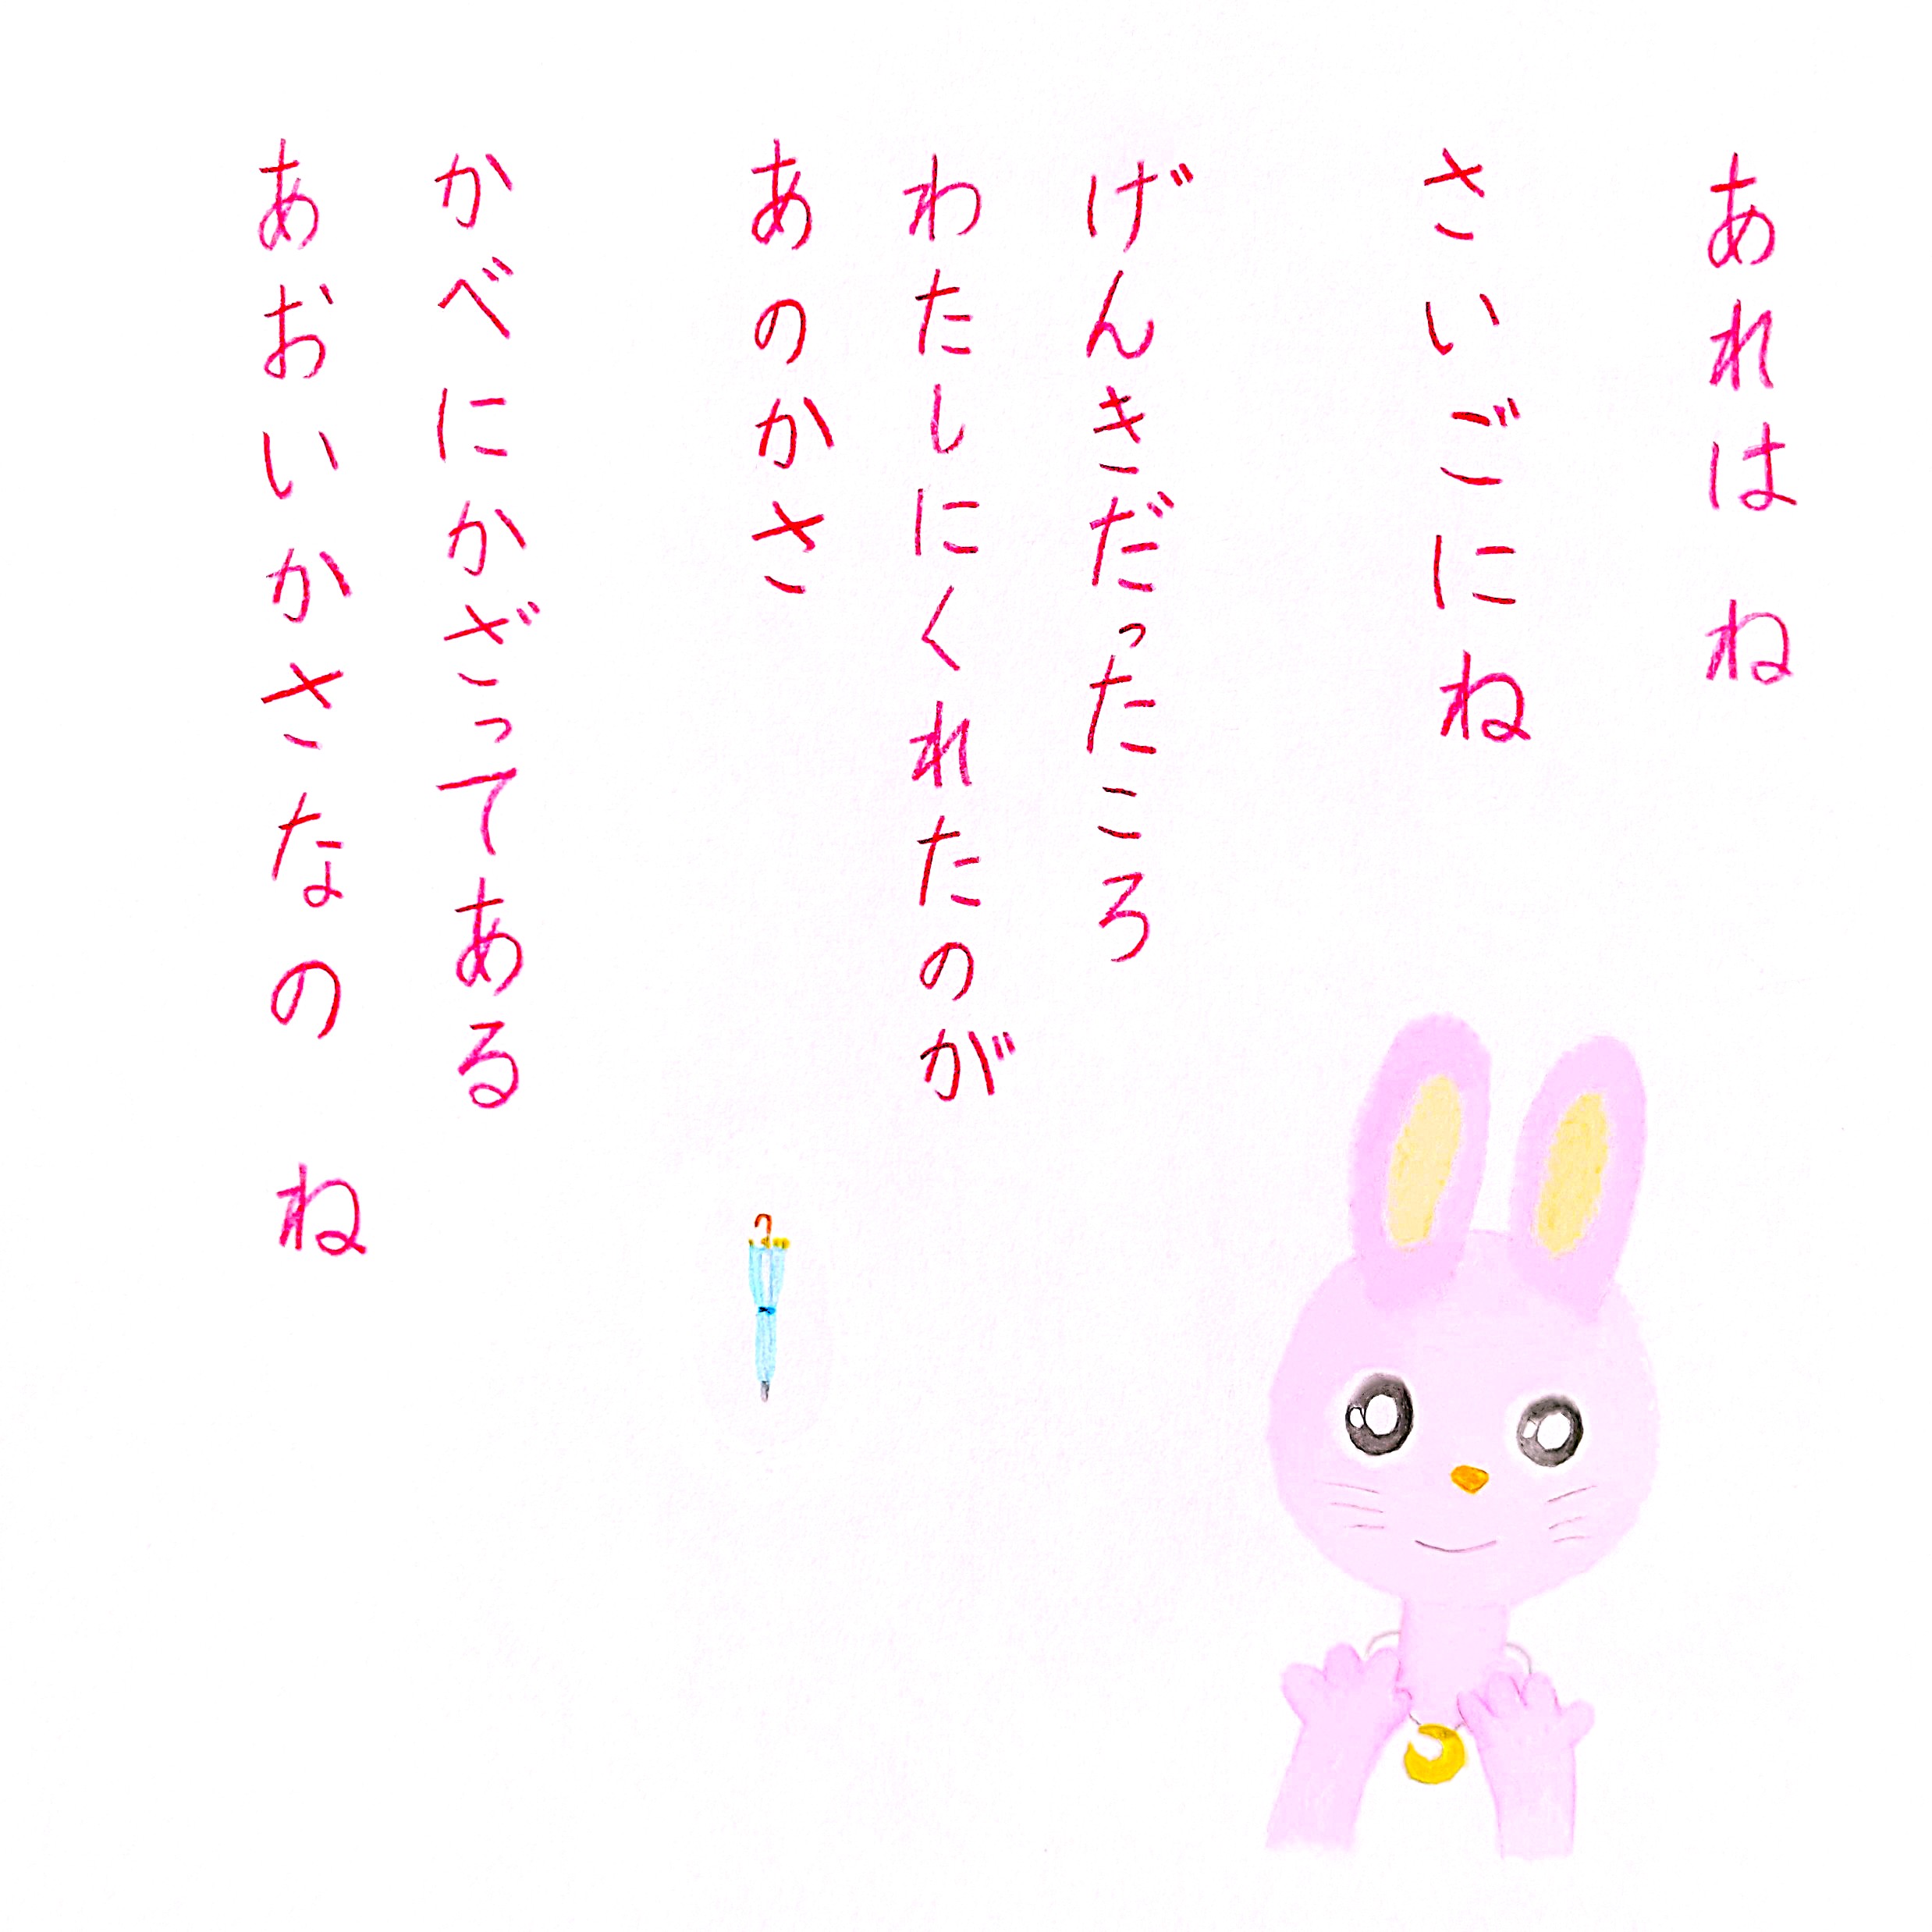 あれは ね
さいごにね
げんきだったころ
わたしにくれたのが
あのかさ
かべにかざってある
あおいかさなの ね